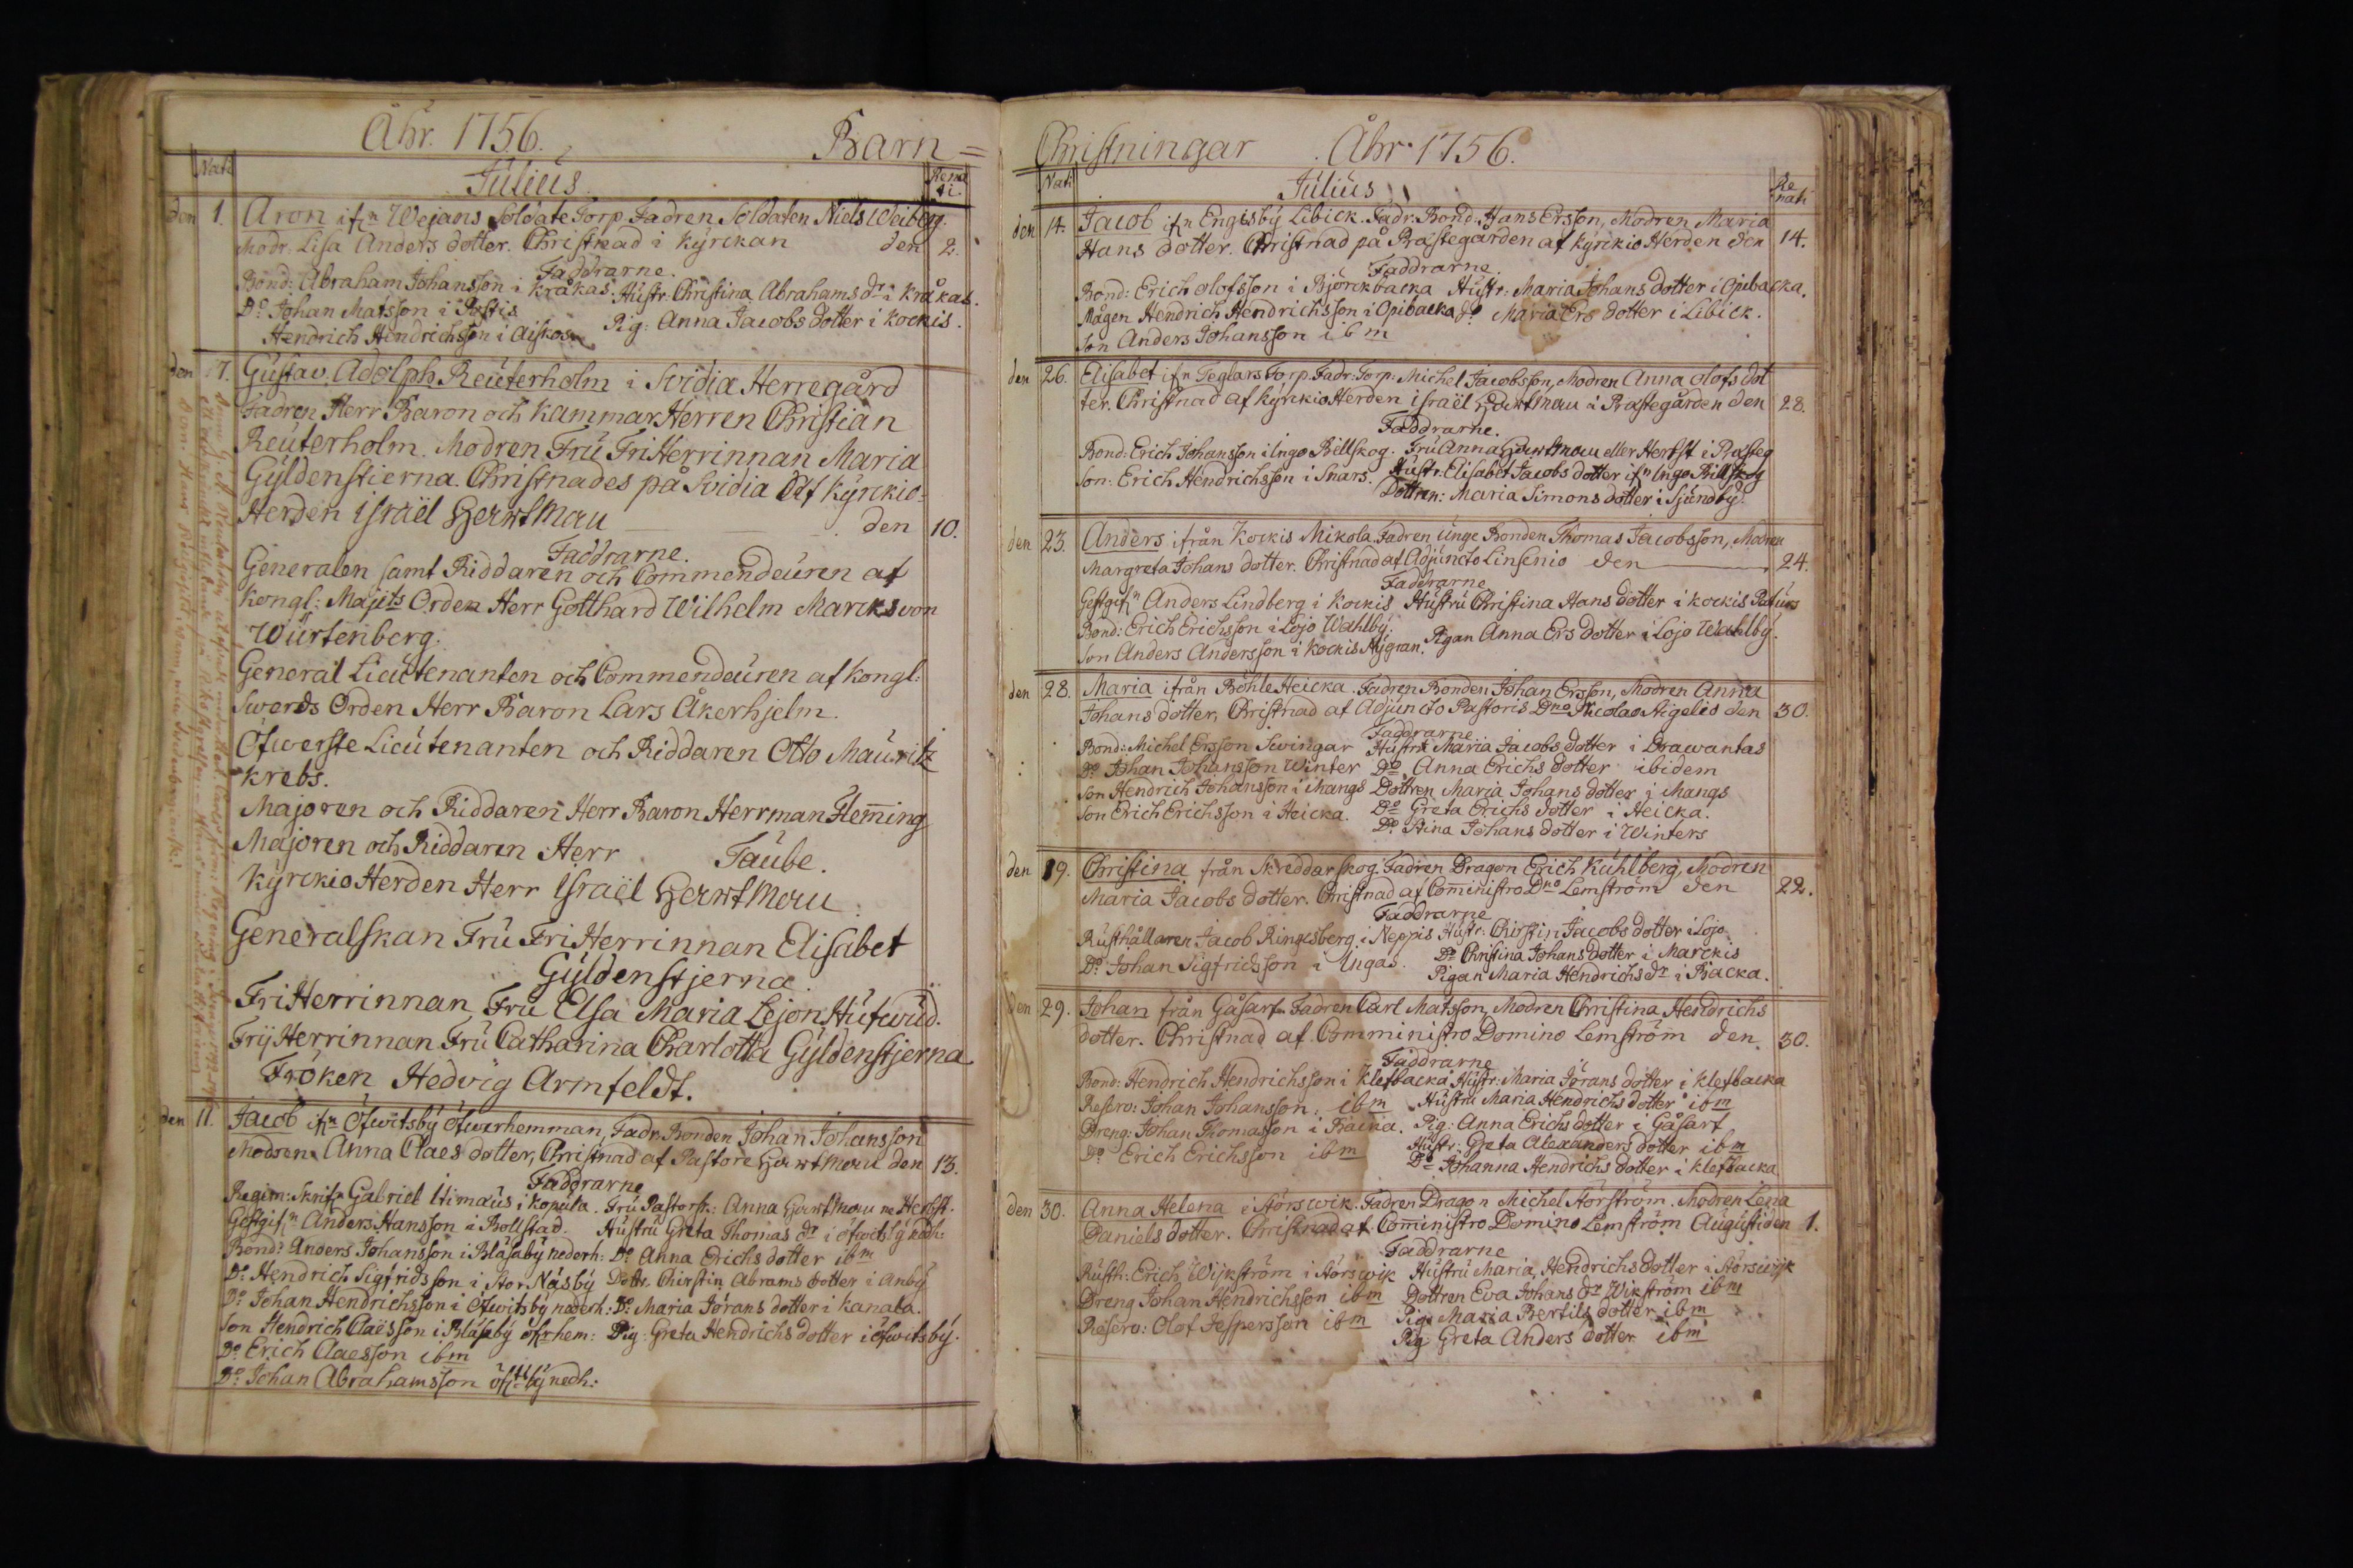 Åhr. 1756. Barn=
Nati Julius. Rena
ti.
den 1. Aron ifn Wejans Soldate Torp. Fadren Soldaten Niels Weiberg.
Modr: Lisa Anders dotter. Christnad i Kyrckan den 2.
Faddrarne.
Bond: Abraham Johansson i Kråkas. Hustr: Christina Abrahams dr i Kråkas.
Do Johan Matsson i Påstis
Pig: Anna Jacobs dotter i Kockis.
Hendrich Hendrichsson i Aiskos
den 7. Gustav Adolph Reuterholm i Svidia Herregård
Fadren Herr Baron och KammarHerren Christian
Reuterholm. Modren Fru FriHerrinnan Maria
Gyldenstierna. Christnades på Svidia Af Kyrckio-
Herden Israël Hertman den 10.
Faddrarne.
Generalen samt Riddaren och Commendeuren af
Kongl: Majits Orden Herr Gotthard Wilhelm Marcks von
Würtenberg.
General Lieutenanten och Commendeuren af Kongl:
Swerds Orden Herr Baron Lars Åkerhjelm.
Öfwerste Lieutenanten och Riddaren Otto Mauritz
Krebs.
Majoren och Riddaren Herr Baron Herrman Flem̄ing
Majoren och Riddaren Herr Taube.
KyrckioHerden Herr Israël Hertman
Generalskan Fru FriHerrinnan Elisabet
Güldenstjerna.
FriHerrinnan Fru Elsa Maria LejonHufwud.
FrijHerrinnan Fru Catharina Charlotta Gyldenstjerna
Fröken Hedvig Armfeldt.
den 11. Jacob ifn Öfwitsby Öfwerhemman, Fadr. Bonden Johan Johansson
Modren Anna Claes dotter, Christnad af Pastore Hertman den 13.
Faddrarne
Regim: Skrifn Gabriel Himaus i Kopula. Fru Pastorsk: Anna Hertman ne Herbst.
Gestgifn Anders Hansson i Bollstad. Hustru Greta Thomas dr i Öfwitsby nedh:
Bond: Anders Johansson i Blåsaby nederh: Do Anna Erichs dotter ibm
Do Hendrich Sigfridsson i Stor Näsby Dottr. Chirstin Abrams dotter i Anby
Do Johan Hendrichsson i Öfwitsby nederh: Do Maria Jörans dotter i Kanala.
Son Hendrich Claësson i Blåsaby öfrhem: Pig: Greta Hendrichs dotter i Öfwitsby.
Do Erich Claesson ibm
Do Johan Abrahamsson nedh:
Christningar Åhr 1756.
Nati Julius Re
nati
den 14. Jacob ifn Engisby Libick. Fadr: Bond: Hans Ersson, Modren Maria
Hans dotter. Christnad på Prästegården af KyrckioHerden den 14.
Faddrarne.
Bond: Erich Olofsson i Björckbacka Hustr: Maria Johans dotter i Opibacka.
Mågen Hendrich Hendrichsson i Opibacka do Maria Ers dotter i Libick.
Son Anders Johansson ibm
den 26. Elisabet ifn Teglars Torp. Fadr: Torp: Michel Jacobsson, Modren Anna Olofs dot
ter. Christnad af KyrkioHerden Israël Hertman i Prästegården den 28.
Faddrarne.
Bond: Erich Johansson i Ingo Billskog. Fru Anna Hertman eller Herbst i Prästeg
Son: Erich Hendrichsson i Snars. Hustr: Elisabet Jacobs dotter ifn Ingo Billskog
Dottren: Maria Simons dotter i Sjundby.
den 23. Anders ifrån Kockis Mikola. Fadren unge Bonden Thomas Jacobsson, Modren
Margreta Johans dotter. Christnad af Adjuncto Linsenio den 24.
Faddrarne
Gestgifn Anders Lindberg i Kockis Hustru Christina Hans dotter i Kockis
Bond: Erich Erichsson i Lojo Wahlby. Pigan Anna Ers dotter i Lojo Wahlby.
Son Anders Andersson i Kockis Nygran.
den 28. Maria ifrån Böhle Heicka. Fadren Bonden Johan Ersson, Modren Anna
Johans dotter, Christnad af Adjuncto Pastoris Dno Nicolao Aigelio den 30.
Faddrarne
Bond: Michel Ersson Swingar Hustru Maria Jacobs dotter i Drawantas
Do Johan Johansson Winter Do Anna Erichs dotter ibidem
Son Hendrich Johansson i Mangs Dottren Maria Johans dotter i Mangs
Son Erich Erichsson i Heicka. Do Greta Erichs dotter i Heicka.
Do Stina Johans dotter i Winters
den 19. Christina från Skreddarskog. Fadren Dragon Erich Kuhlberg, Modren
Maria Jacobs dotter. Christnad af Com̄inistro Dno Lemström den 22.
Faddrarne
Rusthållaren Jacob Ringsberg i Neppis Hustr: Chirstin Jacobs dotter i Lojo
Do Johan Sigfridsson i Ungas. Do Christina Johans dotter i Marckis
Pigan Maria Hendrichs dr i Backa.
den 29. Johan från Gåsarf. Fadren Carl Matsson, Modren Christina Hendrichs
dotter. Christnad af Comministro Domino Lemström den 30.
Faddrarne
Bond: Hendrich Hendrichsson i Klefbacka Hustr: Maria Jörans dotter i Klefbacka
Reserv: Johan Johansson. ibm Hustru Maria Hendrichs dotter ibm
Dreng: Johan Thomasson i Pråina. Pig: Anna Erichs dotter i Gåsarf
Do Erich Erichsson ibm Hustr: Greta Alexanders dotter ibm
Do Johanna Hendrichs dotter i Klefbacka
den 30. Anna Helena i Störswik. Fadren Dragon Michel Störström. Modren Lena
Daniels dotter. Christnad af Com̄inistro Domino Lemström Augusti den 1.
Faddrarne
Rusth: Erich Wijkström i Störswik Hustru Maria Hendrichs dotter i Störswijk
Dreng Johan Hendrichsson ibm Dottren Eva Johans dr Wikström ibm
Reserv: Olof Jespersson ibm Pig: Maria Bertils dotter ibm
Pig Greta Anders dotter ibm